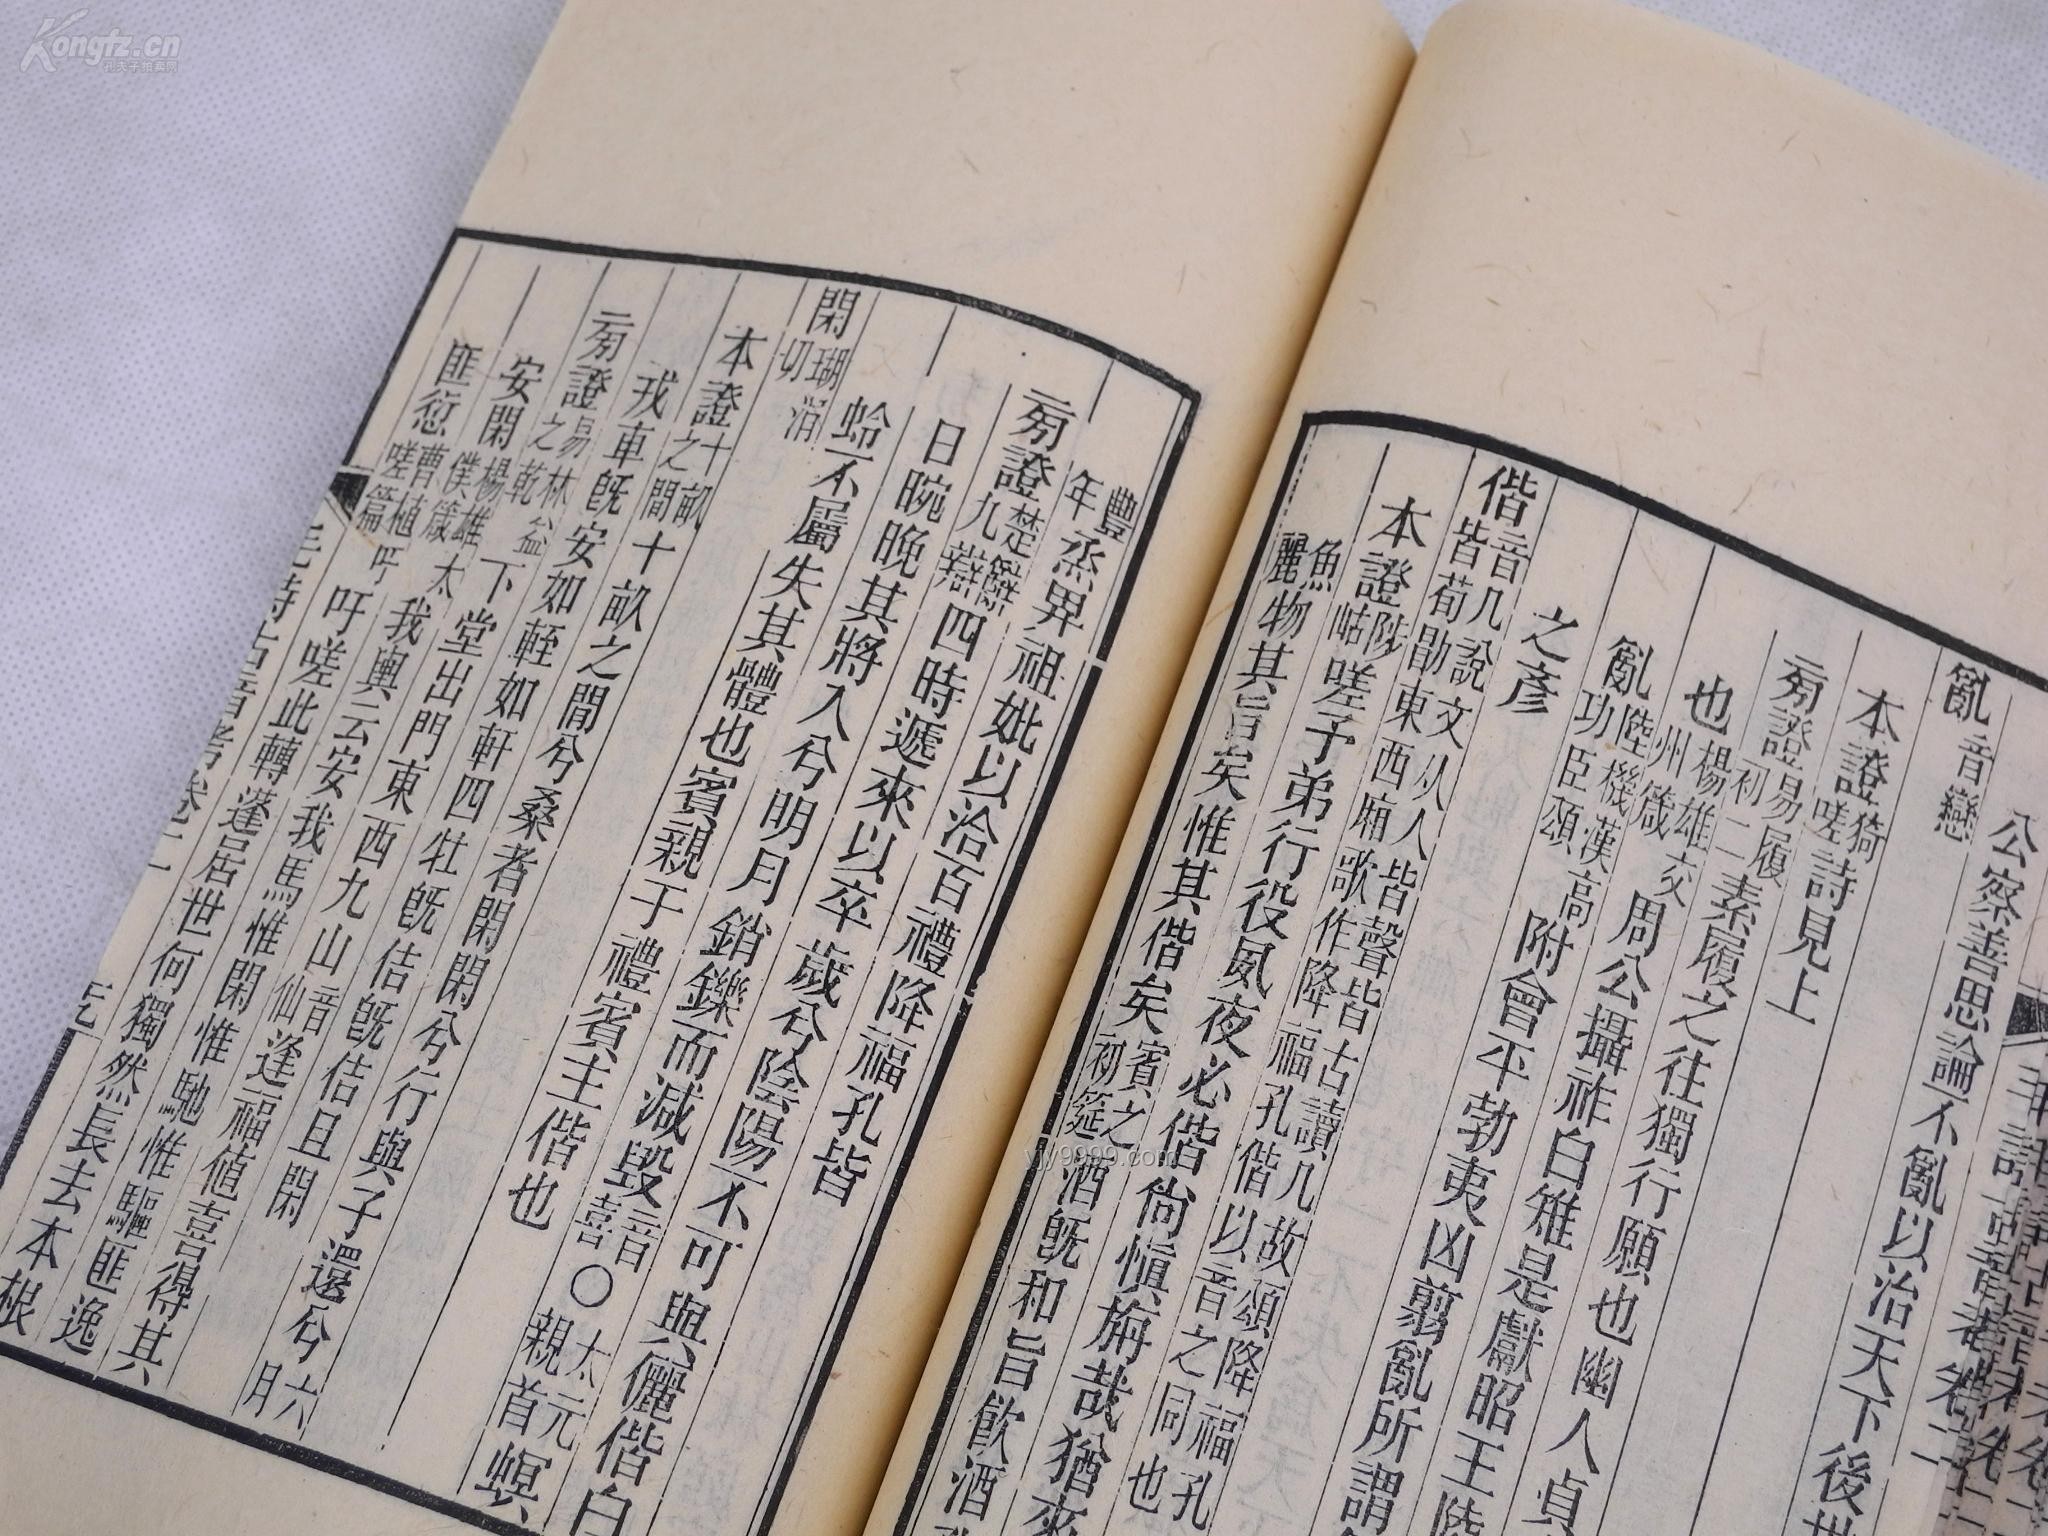 公察善思論不亂以治天下後世
亂音戀
本證猗嗟詩見上
旁證易履初二素履之往獨行願也幽人貞
亂也楊雄交州箴周公攝祚白雉是獻昭王陸
亂陸機漢高功臣頌附會平勃夷凶翦亂所謂
之彥
偕音几說文从人皆聲皆古讀几故頌降福孔
皆荀勖東西廂歌作降福孔偕以音之同也
本證陟岵嗟子弟行役夙夜必偕尚慎旃哉猶來
魚麗物其旨矣惟其偕矣賓之初筵酒旣和旨飲酒
豐年烝畀祖妣以洽百禮降福孔皆
旁證楚辭九辯四時遞來以卒歲兮陰陽不可與儷偕白
日晼晚其將入兮明月銷鑠而減毀音喜○太元親首螟
蛉不屬失其體也賓親于禮賓主偕也
閑瑚涓切
本證十畝之閒十畝之閒兮桑者閑閑兮行與子還兮六月
戎車旣安如輊如軒四牡旣佶旣佶且閑
旁證易林之乾益下堂出門東西九山音仙逢福値喜得其
安閑楊雄太僕箴我輿云安我馬惟閑惟馳惟驅匪逸
匪愆曹植吁嗟篇吁嗟此轉蓬居世何獨然長去本根
毛詩古音考卷二
Kongfz.cn
孔夫子拍卖网
vjy9999.com